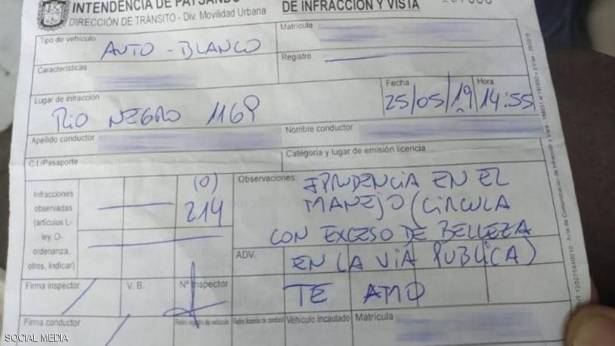 INTENDENCIA DE PAYSANDÚ DE INFRACCIÓN Y VISTA
DIRECCIÓN DE TRÁNSITO - Div. Movilidad Urbana
Tipo de vehículo Matrícula
AUTO - BLANCO
Características Registro
Lugar de infracción Fecha Hora
RIO NEGRO 1169 25/05/19 14:55
Apellido conductor Nombre conductor
C.I./Pasaporte Categoría y lugar de emisión licencia
Infracciones
observadas
(artículos L-
ley, O-
ordenanza,
otros, indicar)
(O)
214
Observaciones: IPRUDENCIA EN EL
MANEJO (CIRCULA
CON EXCESO DE BELLEZA
ADV. EN LA VIA PUBLICA)
Firma inspector V. B. Nº Inspector TE AMO
Firma conductor Vehículo incautado Matrícula
SOCIAL MEDIA